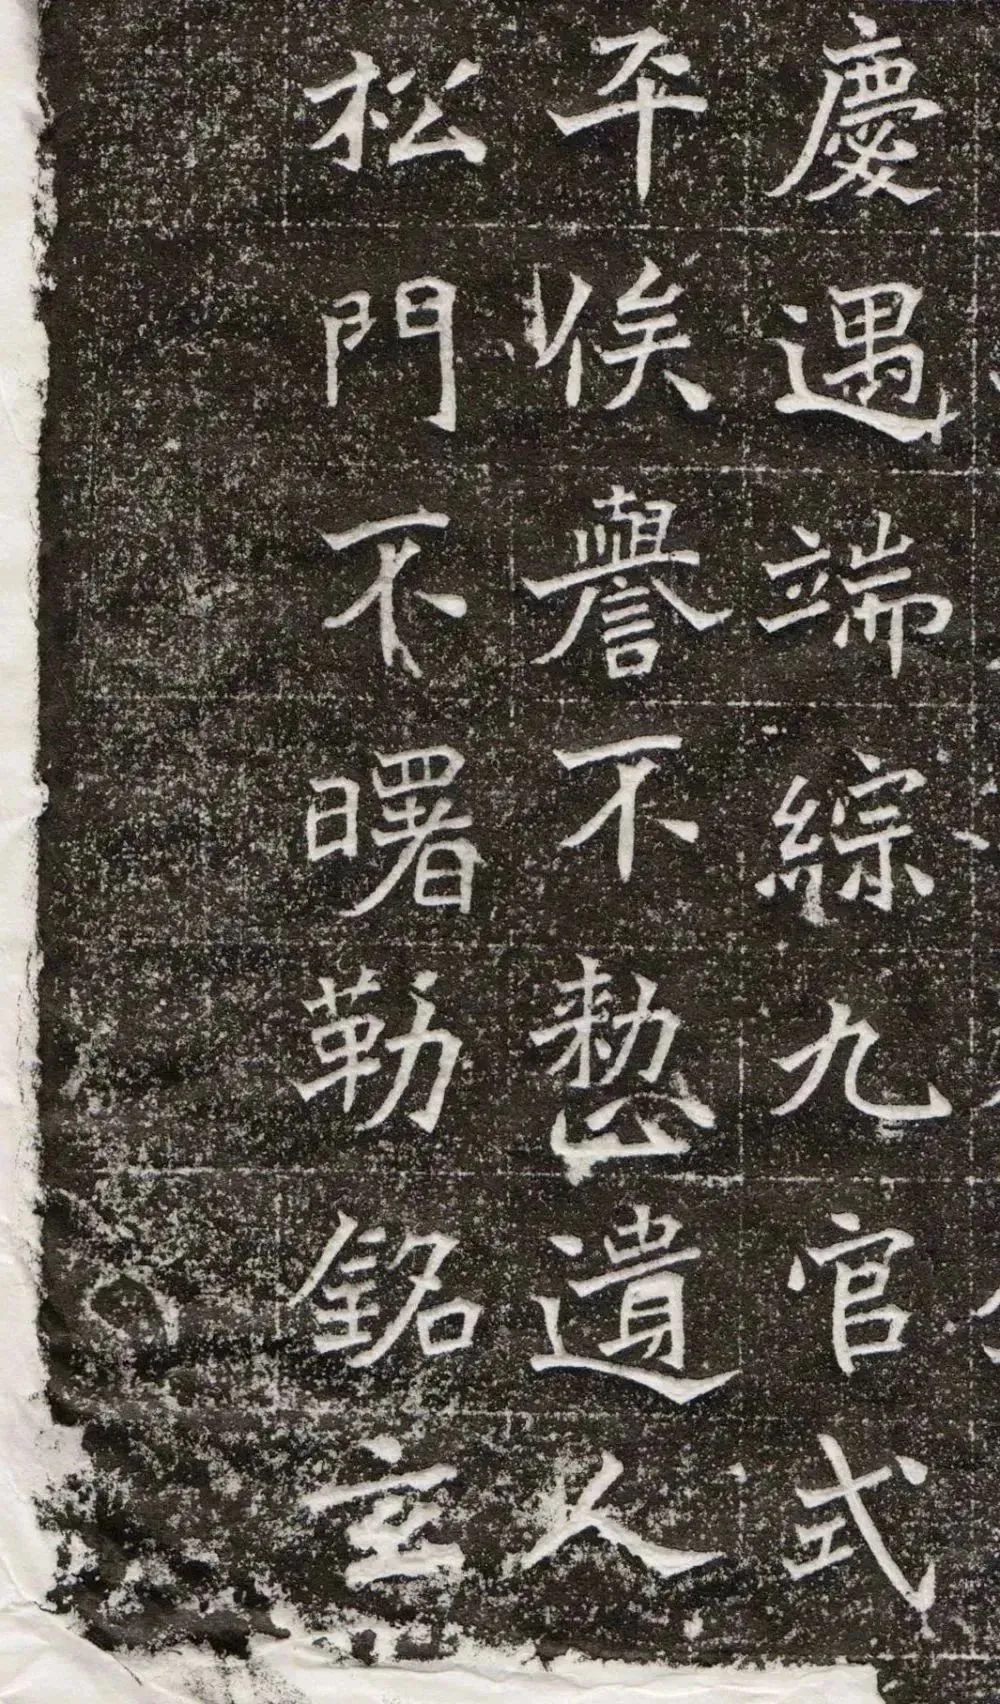 慶遇端綜九官式
平俟譽不憗遺人
松門不曙勒銘玄